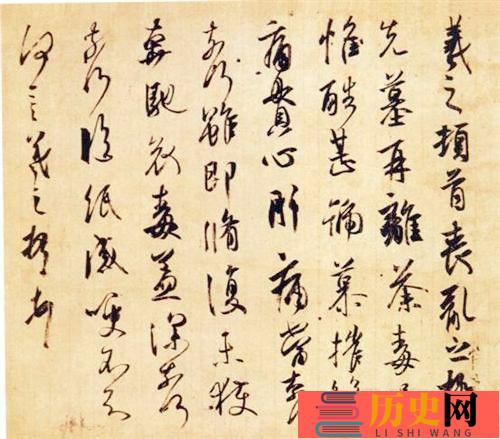 羲之頓首喪亂之極
先墓再離荼毒
惟酷甚號慕摧絕
痛貫心肝痛當奈
奈何雖即脩復未獲
奔馳哀毒益深奈何
奈何臨紙感哽不知
何言羲之頓首
历史网
LI SHI WANG